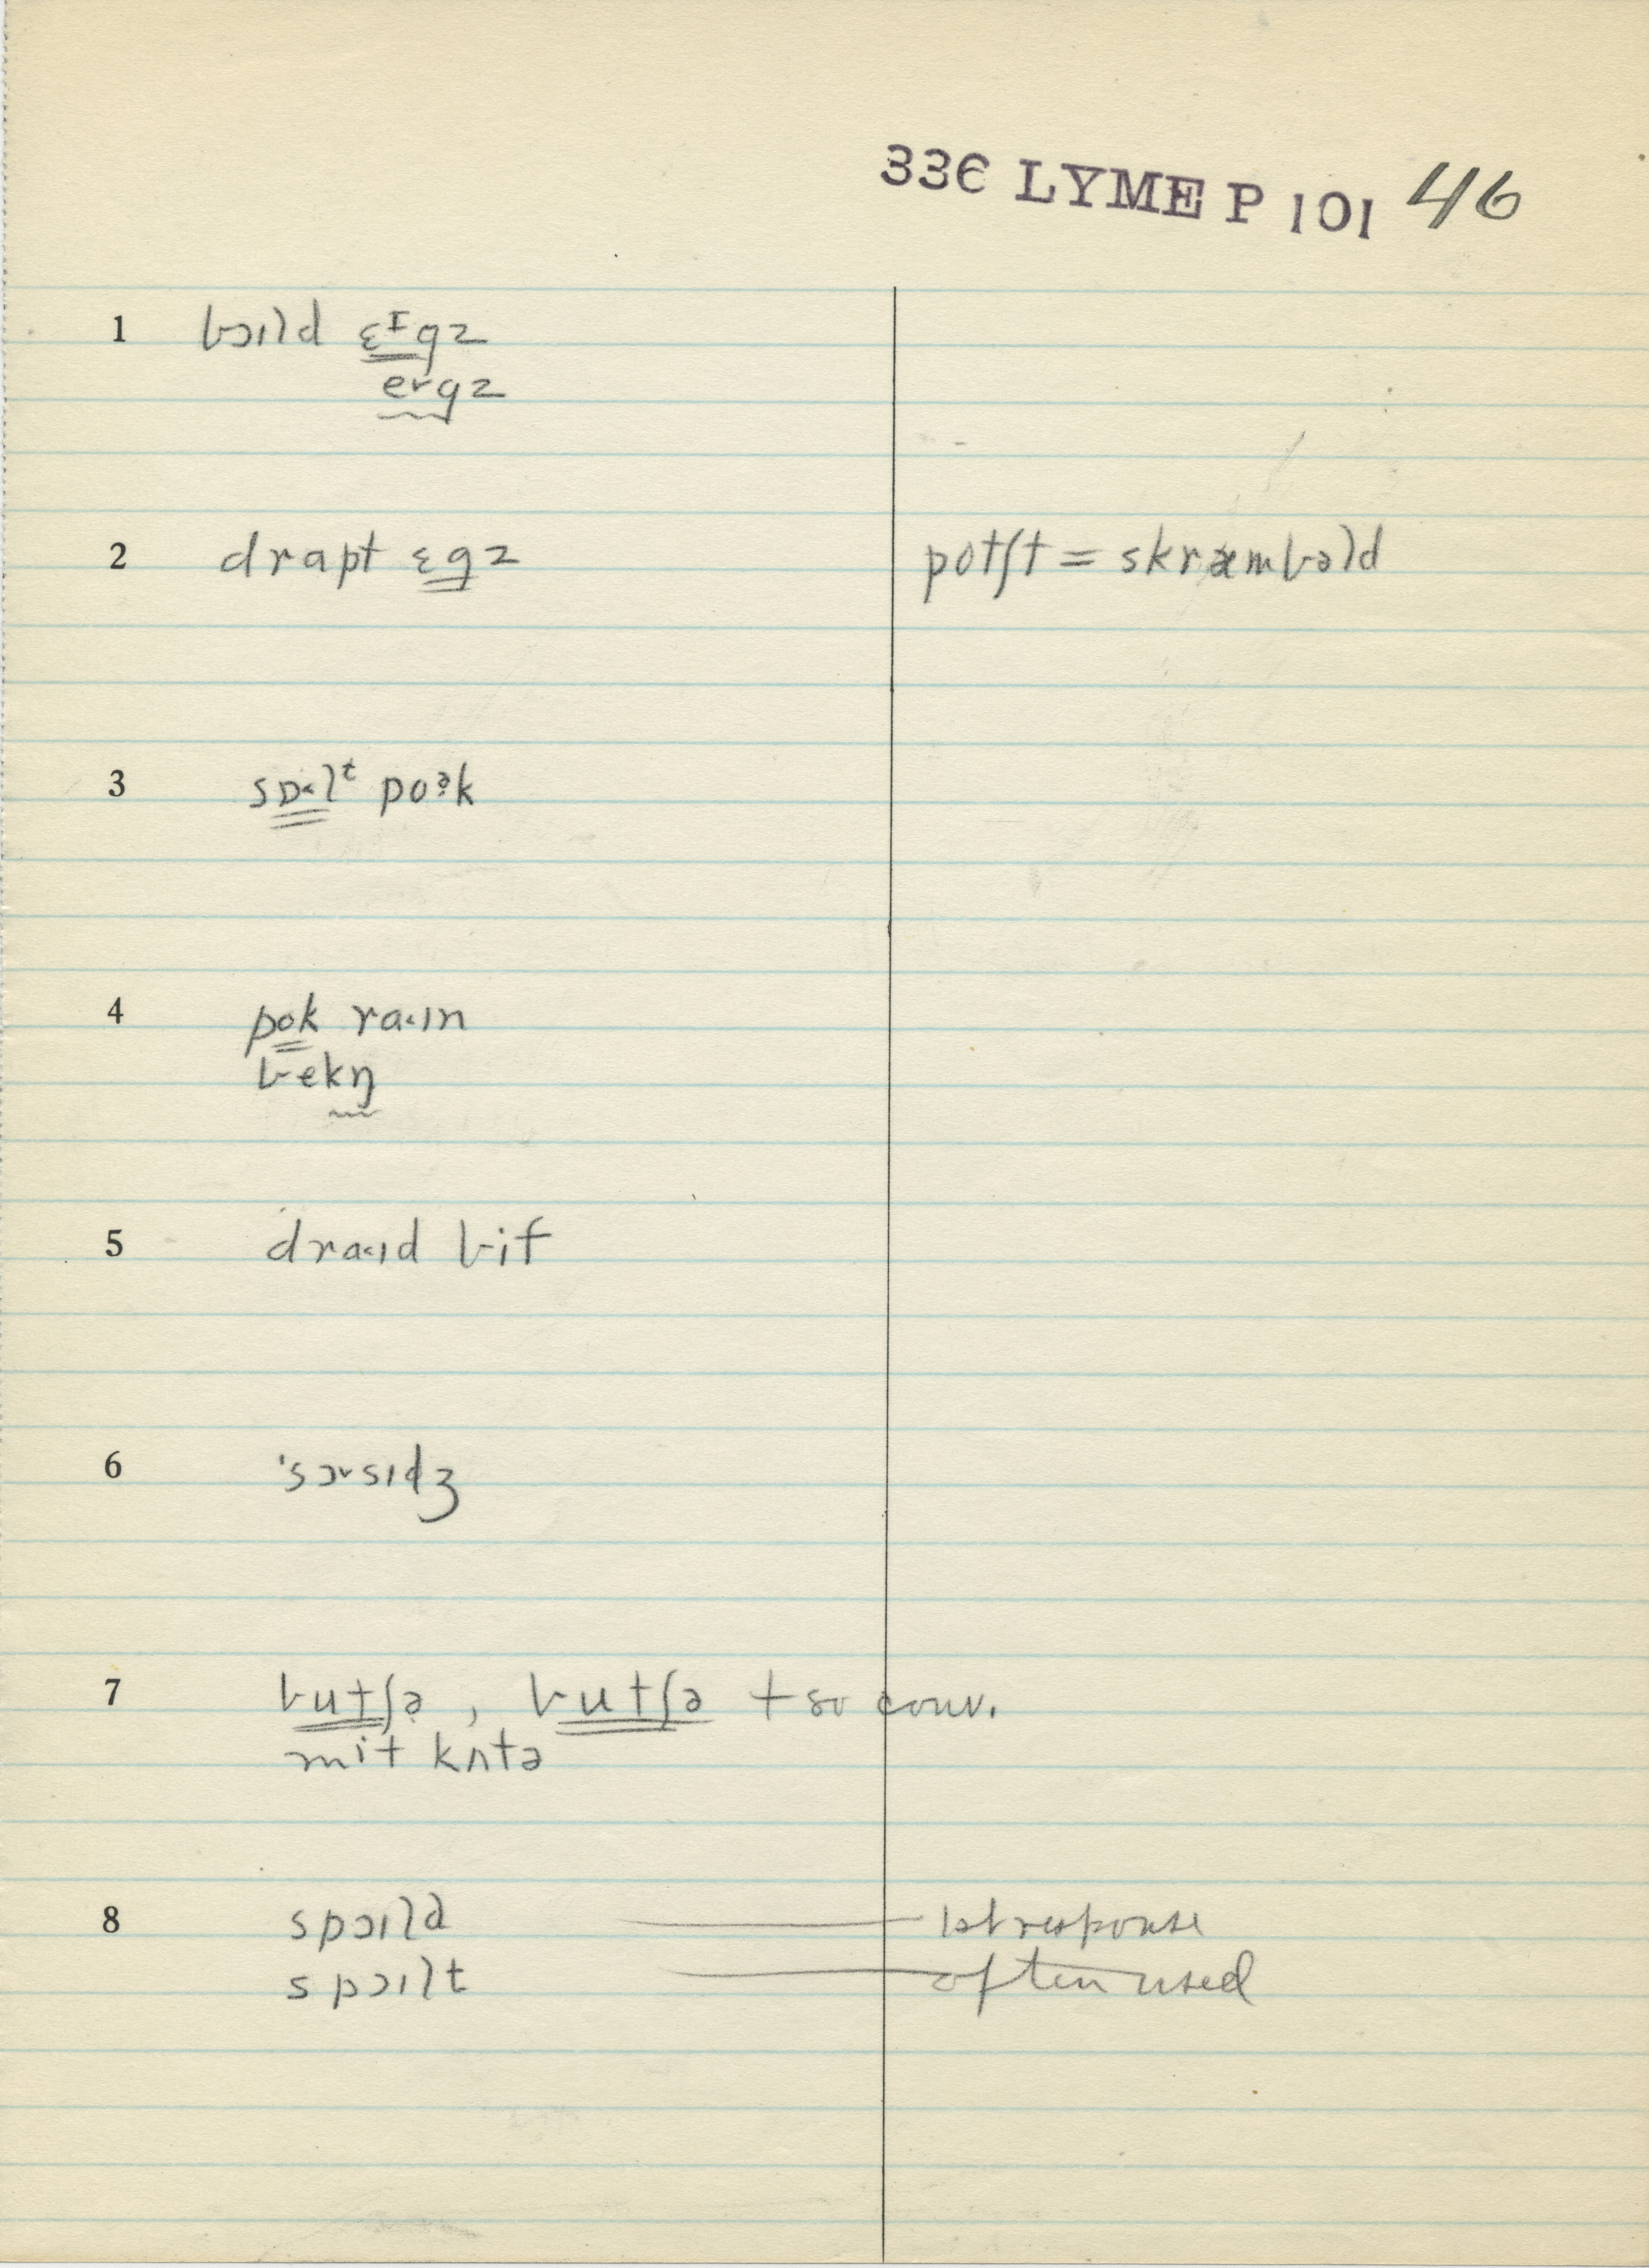 336 LYME P 101 46
1 bɔɪld ɛᴵgz
eɤgz
2 drapt ɛgz potʃt = skræmbəld
3 sɒ˂lᵗ poᵊ̣k
4 pok ra˂ɪn
bekŋ
5 dra˂ɪd bif
6 ˈsɔˠsɪdʒ
7 butʃə̣ , butʃə + so conv.
mit kʌtə
8 spɔɪld 1st response
spɔɪlt often used